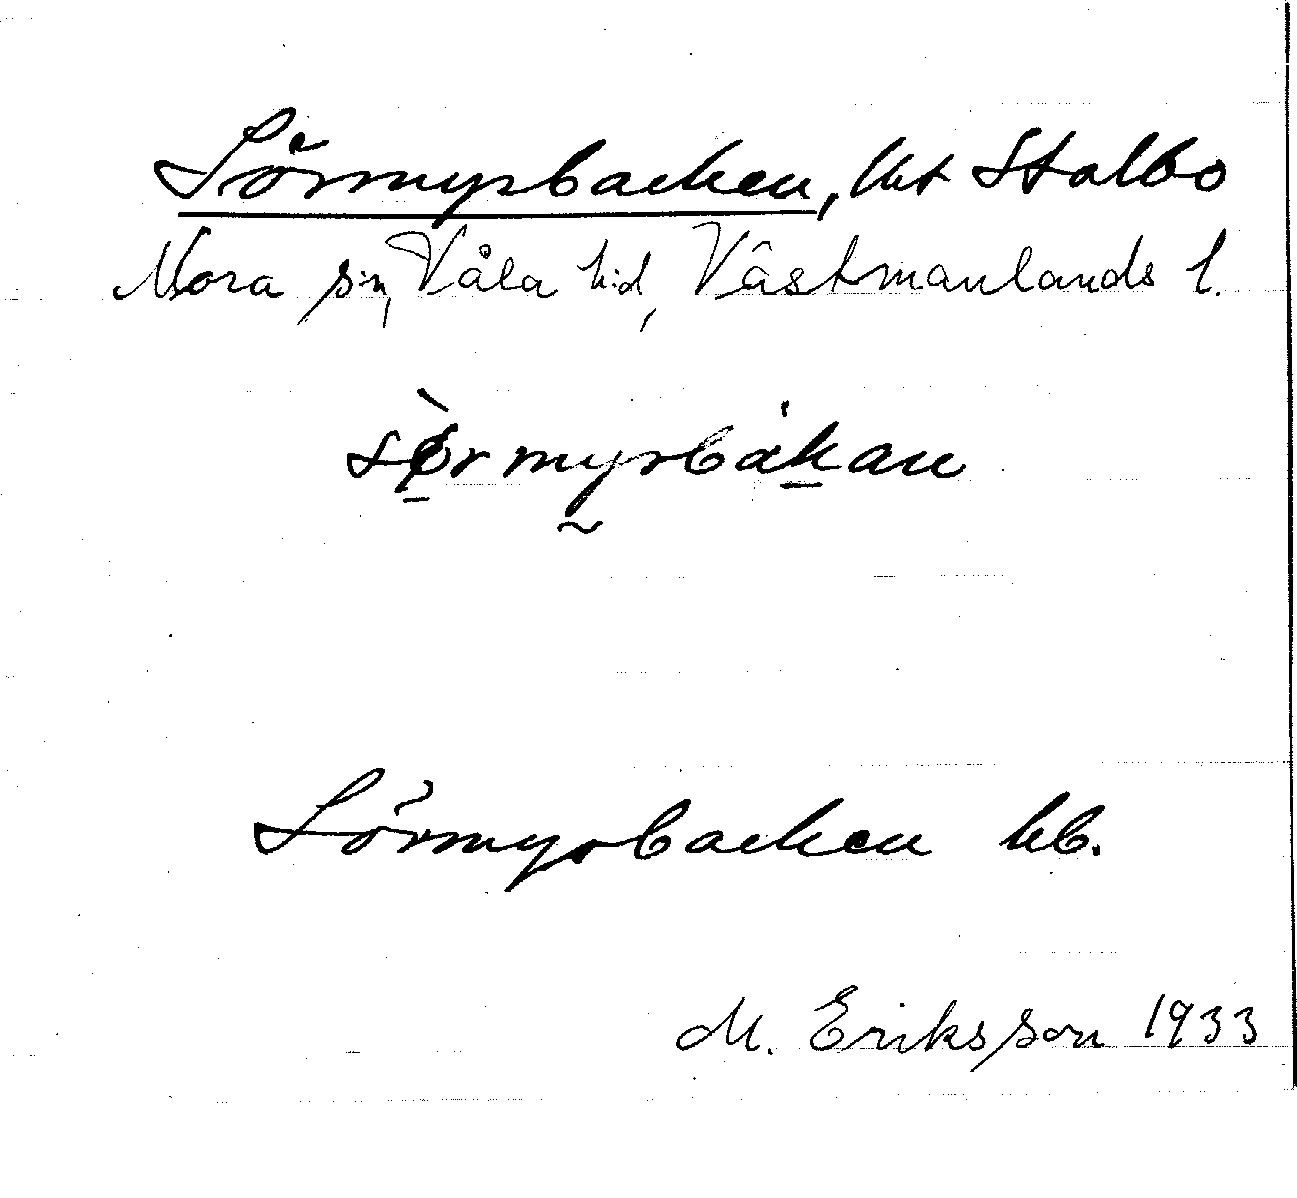 Sörmyrbacken, lht Stalbo
Nora s:n, Våla h:d, Västmanlands l.
sø̀rmyrbakan
Sörmyrbacken hb.
M. Eriksson 1933